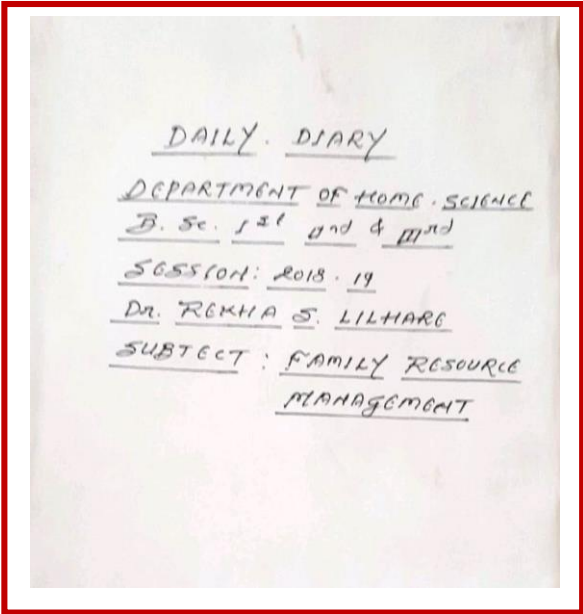 DAILY. DIARY
DEPARTMENT OF HOME. SCIENCE
B. Sc. 1st IInd & IIIrd
SESSION: 2018. 19
Dr. REKHA S. LILHARE
SUBTECT : FAMILY RESOURCE
MANAGEMENT